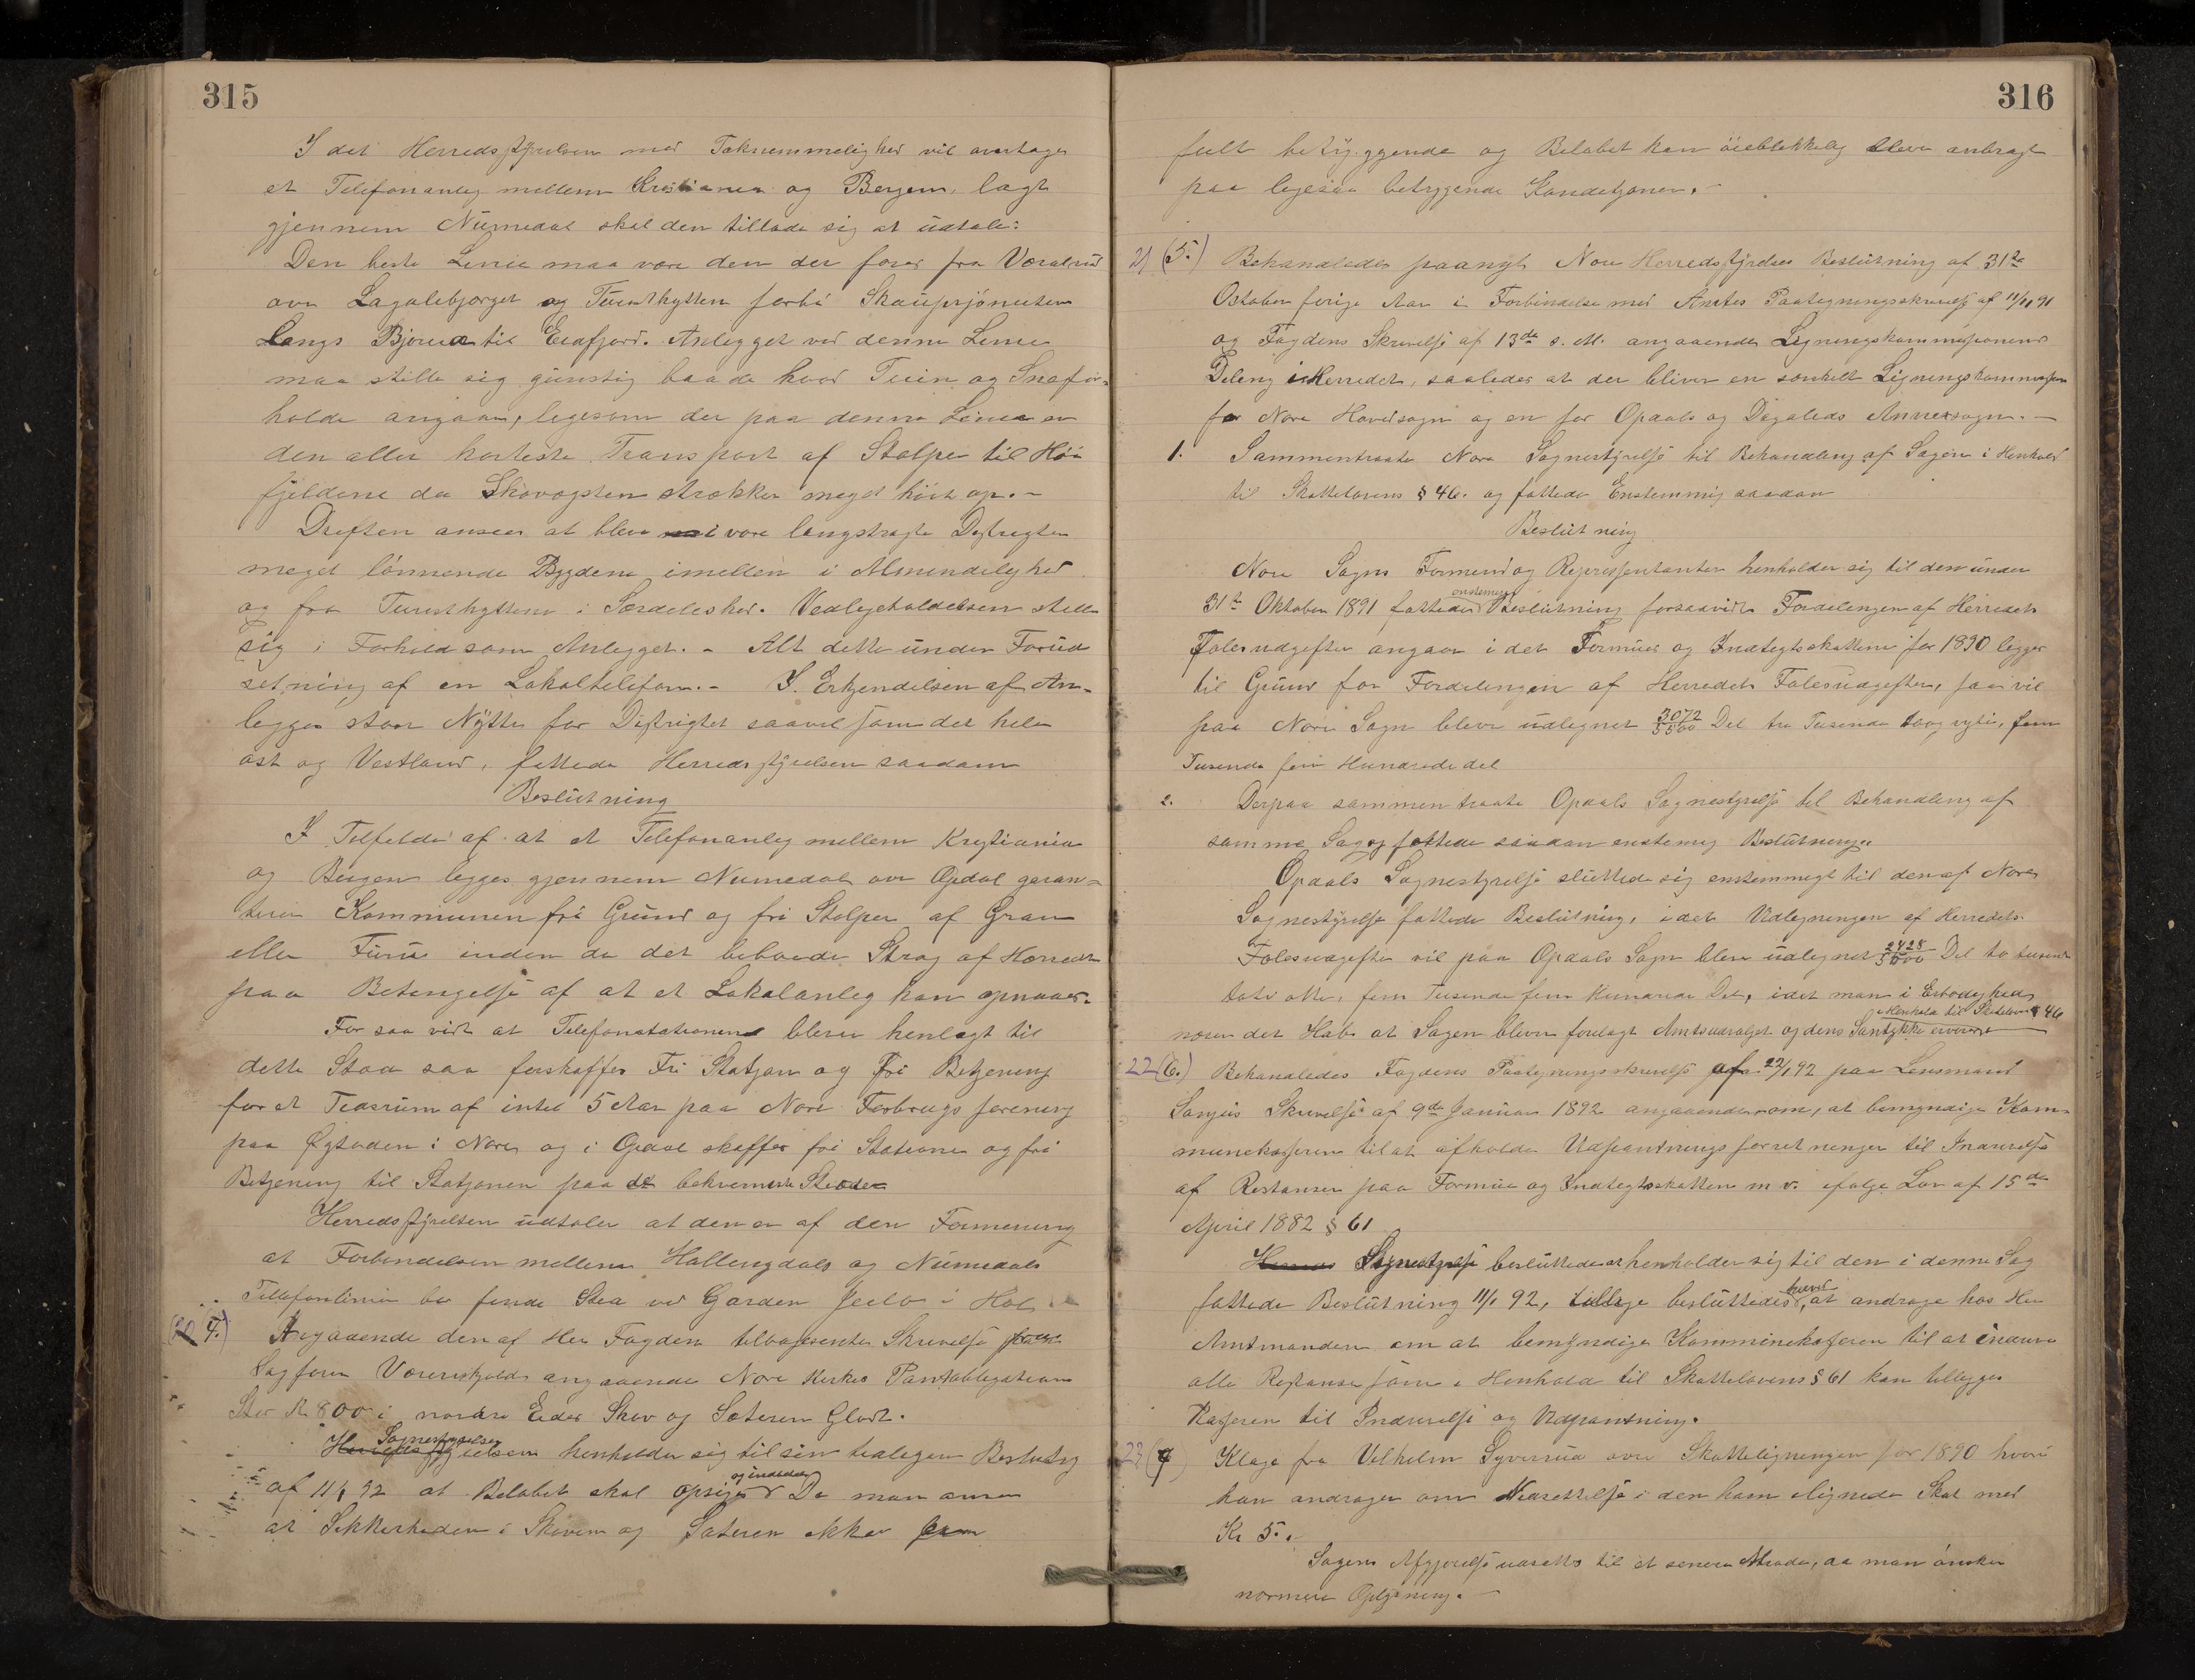 315
I det Herredsstyrelsen med Taknemmelighed vil modtage
et Telefonanleg mellem Kristiania og Bergen, lagt
gjennem Numedal skal den tillade sig at udtale:
Den beste Linie maa være den der fører fra
over og Turisthytten forbi
Langs Bjoreia til Eidfjord. Anlegget ved denne Linie
maa stille sig gunstig baade hvad Terin og Snefor-
holde angaar, ligesom der paa denne Linie er
den aller korteste Transport af Stolper til Høi
fjeldene da Skovvegsten strækker meget høit op. -
Driften ansees at bleve i vore langstragte Distrigter
meget lønnende Bygdene imellem i Almindelighed
og fra Turisthyttene i Særdeleshed. Vedligeholdelsen stille
sig i Forhold som Anlegget. - Alt dette under Forud
setning af en Lokaltelefon. - I Erkjendelsen af An-
legges store Nytte for Distrigtet saavel som det hele
øst og Vestland, fattede Herredsstyrelsen saadan
Beslutning
I Tilfelde af at et Telefonanleg mellem Kristiania
og Bergen legges gjennem Numedal over Opdal garan-
terer Kommunen fri Grund og fri Stolper af Gran
eller Furu inden de det beboede Strøg af Herredet
paa Betingelse af at et Lokalanleg kan opnaaes.
For saa vidt at Telefonstationene bliver henlagt til
dette Sted saa forskaffes Fri Stasjon og fri Betjening
for et Tidsrum af intil 5 Aar paa Nore Forbrugsforening
paa i Nore og i Opdal skaffes fri Stationer og fri
Betjening til Statjonen paa det bekvemmeste Steder
Herredsstyrelsen udtaler at den er af den Formening
at Forbindelsen mellem Hallingdals og Numedals
Telefonlinie bør finde Sted ved Garden i Hol
(20 4.) Angaaende den af Her Fogden tilbagesente Skrivelse
Sagfører Værenskjold angaaende Nore Kirkes Pantobligation
Stor Kr 800 i nordre Eides Skov og Sæteren Glødt.
Sagnestyrelsen
Herredsstyrelsen henholder sig til sin tidligere Beslutng
og inddrives
af 11/1 92 at Beløbet skal opsiges Da man anser
at Sikkerheden i Skoven og Sæteren ikke
316
fult betryggende og Beløbet kan øieblikkelig bleve anbragt
paa ligesaa betryggende Kondetjoner. -
21 (5.) Behandledes paanyt Nore Herredsstyrelses Beslutning af 31te
October forige Aar i Forbindelse med Amtes Paategningsskrivelse af 11/11 91
og Fogdens Skrivelse af 13de s. M. angaaende Ligningskommissionens
Deling i Herredet, saaledes at der bliver en sænkelt Ligningskommission
for Nore Hovedsogn og en for Opdals og Dagalids Annexsogn. -
1. Sammentraate Nore Sognestyrelse til Behandling af Sagen i Henhold
til Skattelovens § 46. og fattede Enstemmig saadan
Beslutning
Nore Sogns Formend og Representanter henholder sig til den under
enstemmig
31te Oktober 1891 fattede Beslutning forsaavidt Fordelingen af Herredets
Felesudgifter angaar i det Formues og Indtegtsskattene for 1890 legges
til Grund for Fordelingen af Herredets Felesudgifter, saa vil
paa Nore Sogn bleve udlignet 3072/5500 Del tre Tusende to og sytti, fem
Tusende fem Hundrede del
2. Derpaa sammentraate Opdals Sognestyrelse til Behandling af
samme Sag og fattede saadan enstemig Beslutning.
Opdals Sognestyrelse sluttede sig enstemmigt til den af Nore
Sognestyrelse fattede Beslutning, i det Udligningen af Herredets
Felesudgifter vil paa Opdals Sogn bleve udlignet 2428/5500 Del to tusend
otte, fem Tusende fem Hundrede Del, idet man i Erbødighed
i Henhold til Skatteloven § 46
nærer det Haab at Sagen bliver forelagt Amtsudvalget og dens Samtykke erverves
22 (6.) Behandledes Fogdens Paategningsskrivelse af 22/1 92 paa Lensmand
Skrivelse af 9de Januar 1892 angaaende om, at bemyndige Kom-
munekasseren til at afholde Udpantningsforretninger til Indrivelse
af Restanser paa Formue og Indtegtsskatten m v. ifølge Lov af 15de
April 1882 § 61
Herreds Sognestyrelse besluttede at henholder sig til den i denne Sag
fattede Beslutning 11/1 92, tillige besluttedes, at andrage hos Her
Amtmanden om at bemyndige Kommunekasseren til at indrive
alle Restanser som i Henhold til Skattelovens § 61 kan tillegges
Kasseren til Indrivelse og Udpantning.
23 (7) Klage fra Velhelm Syversrud over Skatteligningen for 1890 hvori
han andrager om Nedsettelse i den ham ilignede Skat med
Kr 5.
Sagens Afgjørelse udsettes til et senere Møde, da man ønsker
nærmere Oplysning. -